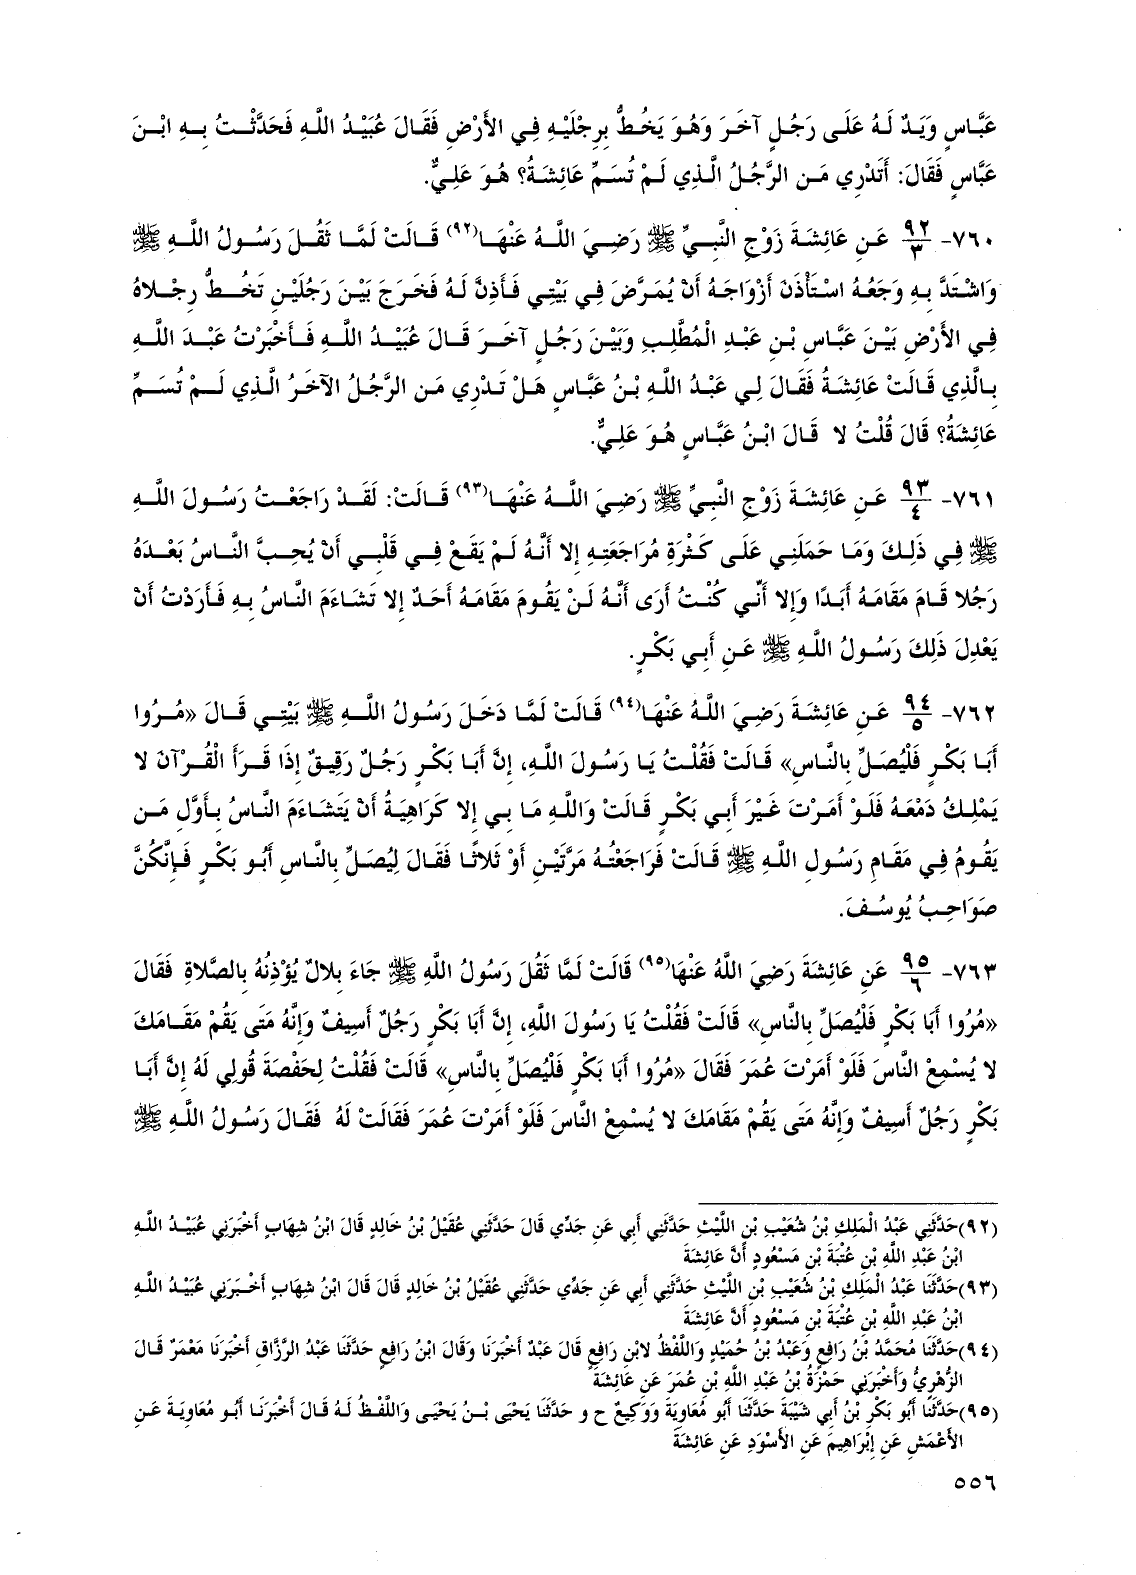 عَبَّاسٍ وَيَدٌ لَهُ عَلَى رَجُلٍ آخَرَ وَهُوَ يَخُطُّ بِرِجْلَيْهِ فِي الأَرْضِ فَقَالَ عُبَيْدُ اللَّهِ فَحَدَّثْتُ بِهِ ابْنَ
عَبَّاسٍ فَقَالَ: أَتَدْرِي مَنِ الرَّجُلُ الَّذِي لَمْ تُسَمِّ عَائِشَةُ؟ هُوَ عَلِيٌّ.
٧٦٠- ٩٢/٣ عَنِ عَائِشَةَ زَوْجِ النَّبِيِّ ﷺ رَضِيَ اللَّهُ عَنْهَا(٩٢) قَالَتْ لَمَّا ثَقُلَ رَسُولُ اللَّهِ ﷺ
وَاشْتَدَّ بِهِ وَجَعُهُ اسْتَأْذَنَ أَزْوَاجَهُ أَنْ يُمَرَّضَ فِي بَيْتِي فَأَذِنَّ لَهُ فَخَرَجَ بَيْنَ رَجُلَيْنِ تَخُطُّ رِجْلاهُ
فِي الأَرْضِ بَيْنَ عَبَّاسِ بْنِ عَبْدِ الْمُطَّلِبِ وَبَيْنَ رَجُلٍ آخَرَ قَالَ عُبَيْدُ اللَّهِ فَأَخْبَرْتُ عَبْدَ اللَّهِ
بِالَّذِي قَالَتْ عَائِشَةُ فَقَالَ لِي عَبْدُ اللَّهِ بْنُ عَبَّاسٍ هَلْ تَدْرِي مَنِ الرَّجُلُ الآخَرُ الَّذِي لَمْ تُسَمِّ
عَائِشَةُ؟ قَالَ قُلْتُ لا قَالَ ابْنُ عَبَّاسٍ هُوَ عَلِيٌّ.
٧٦١- ٩٣/٤ عَنِ عَائِشَةَ زَوْجِ النَّبِيِّ ﷺ رَضِيَ اللَّهُ عَنْهَا(٩٣) قَالَتْ: لَقَدْ رَاجَعْتُ رَسُولَ اللَّهِ
ﷺ فِي ذَلِكَ وَمَا حَمَلَنِي عَلَى كَثْرَةِ مُرَاجَعَتِهِ إِلا أَنَّهُ لَمْ يَقَعْ فِي قَلْبِي أَنْ يُحِبَّ النَّاسُ بَعْدَهُ
رَجُلا قَامَ مَقَامَهُ أَبَدًا وَإِلا أَنِّي كُنْتُ أَرَى أَنَّهُ لَنْ يَقُومَ مَقَامَهُ أَحَدٌ إِلا تَشَاءَمَ النَّاسُ بِهِ فَأَرَدْتُ أَنْ
يَعْدِلَ ذَلِكَ رَسُولُ اللَّهِ ﷺ عَنِ أَبِي بَكْرٍ.
٧٦٢- ٩٤/٥ عَنِ عَائِشَةَ رَضِيَ اللَّهُ عَنْهَا(٩٤) قَالَتْ لَمَّا دَخَلَ رَسُولُ اللَّهِ ﷺ بَيْتِي قَالَ «مُرُوا
أَبَا بَكْرٍ فَلْيُصَلِّ بِالنَّاسِ» قَالَتْ فَقُلْتُ يَا رَسُولَ اللَّهِ، إِنَّ أَبَا بَكْرٍ رَجُلٌ رَقِيقٌ إِذَا قَرَأَ الْقُرْآنَ لا
يَمْلِكُ دَمْعَهُ فَلَوْ أَمَرْتَ غَيْرَ أَبِي بَكْرٍ قَالَتْ وَاللَّهِ مَا بِي إِلا كَرَاهِيَةُ أَنْ يَتَشَاءَمَ النَّاسُ بِأَوَّلِ مَنِ
يَقُومُ فِي مَقَامِ رَسُولِ اللَّهِ ﷺ قَالَتْ فَرَاجَعْتُهُ مَرَّتَيْنِ أَوْ ثَلاثًا فَقَالَ لِيُصَلِّ بِالنَّاسِ أَبُو بَكْرٍ فَإِنَّكُنَّ
صَوَاحِبُ يُوسُفَ.
٧٦٣- ٩٥/٦ عَنِ عَائِشَةَ رَضِيَ اللَّهُ عَنْهَا(٩٥) قَالَتْ لَمَّا ثَقُلَ رَسُولُ اللَّهِ ﷺ جَاءَ بِلالٌ يُؤْذِنُهُ بِالصَّلاةِ فَقَالَ
«مُرُوا أَبَا بَكْرٍ فَلْيُصَلِّ بِالنَّاسِ» قَالَتْ فَقُلْتُ يَا رَسُولَ اللَّهِ، إِنَّ أَبَا بَكْرٍ رَجُلٌ أَسِيفٌ وَإِنَّهُ مَتَى يَقُمْ مَقَامَكَ
لا يُسْمِعْ النَّاسَ فَلَوْ أَمَرْتَ عُمَرَ فَقَالَ «مُرُوا أَبَا بَكْرٍ فَلْيُصَلِّ بِالنَّاسِ» قَالَتْ فَقُلْتُ لِحَفْصَةَ قُولِي لَهُ إِنَّ أَبَا
بَكْرٍ رَجُلٌ أَسِيفٌ وَإِنَّهُ مَتَى يَقُمْ مَقَامَكَ لا يُسْمِعْ النَّاسَ فَلَوْ أَمَرْتَ عُمَرَ فَقَالَتْ لَهُ فَقَالَ رَسُولُ اللَّهِ ﷺ
(٩٢)حَدَّثَنِي عَبْدُ الْمَلِكِ بْنُ شُعَيْبِ بْنِ اللَّيْثِ حَدَّثَنِي أَبِي عَنِ جَدِّي قَالَ حَدَّثَنِي عُقَيْلُ بْنُ خَالِدٍ قَالَ ابْنُ شِهَابٍ أَخْبَرَنِي عُبَيْدُ اللَّهِ
ابْنُ عَبْدِ اللَّهِ بْنِ عُتْبَةَ بْنِ مَسْعُودٍ أَنَّ عَائِشَةَ
(٩٣)حَدَّثَنَا عَبْدُ الْمَلِكِ بْنُ شُعَيْبِ بْنِ اللَّيْثِ حَدَّثَنِي أَبِي عَنِ جَدِّي حَدَّثَنِي عُقَيْلُ بْنُ خَالِدٍ قَالَ قَالَ ابْنُ شِهَابٍ أَخْبَرَنِي عُبَيْدُ اللَّهِ
ابْنُ عَبْدِ اللَّهِ بْنِ عُتْبَةَ بْنِ مَسْعُودٍ أَنَّ عَائِشَةَ
(٩٤)حَدَّثَنَا مُحَمَّدُ بْنُ رَافِعٍ وَعَبْدُ بْنُ حُمَيْدٍ وَاللَّفْظُ لابْنِ رَافِعٍ قَالَ عَبْدٌ أَخْبَرَنَا وَقَالَ ابْنُ رَافِعٍ حَدَّثَنَا عَبْدُ الرَّزَّاقِ أَخْبَرَنَا مَعْمَرٌ قَالَ
الزُّهْرِيُّ وَأَخْبَرَنِي حَمْزَةُ بْنُ عَبْدِ اللَّهِ بْنِ عُمَرَ عَنِ عَائِشَةَ
(٩٥)حَدَّثَنَا أَبُو بَكْرِ بْنُ أَبِي شَيْبَةَ حَدَّثَنَا أَبُو مُعَاوِيَةَ وَوَكِيعٌ ح و حَدَّثَنَا يَحْيَى بْنُ يَحْيَى وَاللَّفْظُ لَهُ قَالَ أَخْبَرَنَا أَبُو مُعَاوِيَةَ عَنِ
الأَعْمَشِ عَنِ إِبْرَاهِيمَ عَنِ الأَسْوَدِ عَنِ عَائِشَةَ
٥٥٦